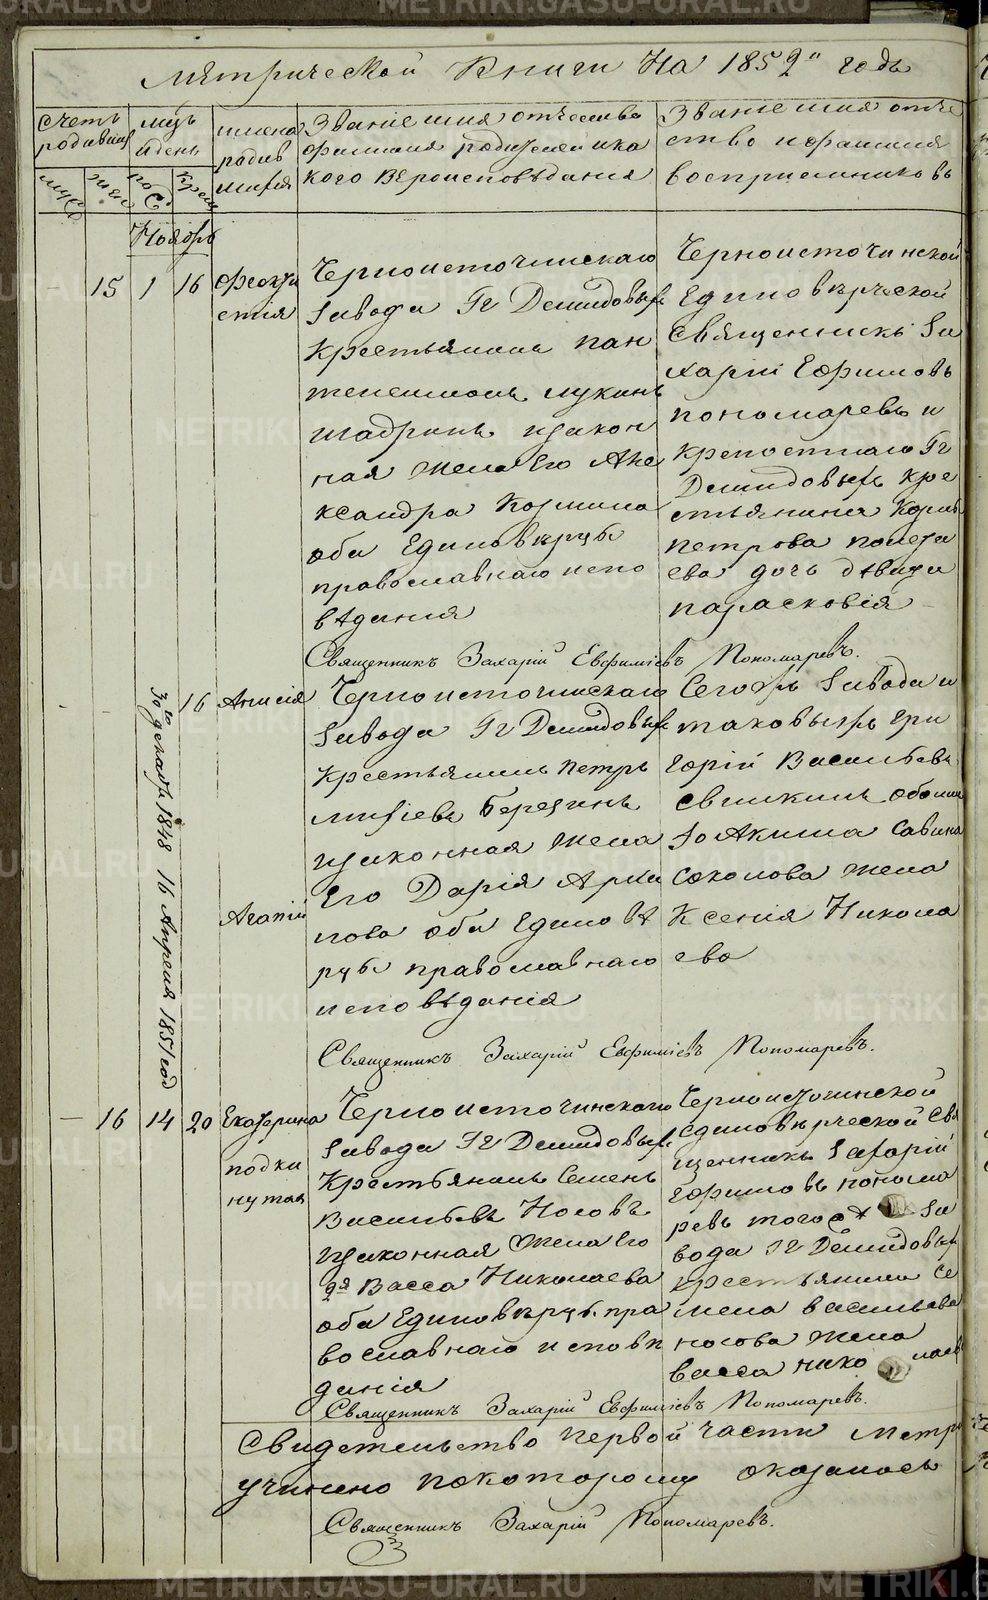 метрической Книги На 1852й годъ
Счетъ родившихся
мѣсяцъ и день
имена родившихся
Званіе имя отчество фамилия родителей и какого вѣроисповѣдания
Званіе имя отчество и фамилия восприемниковъ
Ноябрь
15 1 16 Феокти
стия
Черноисточинскаго
Завода Гг Демидовыхъ
Крестьянинъ пан
телеимонъ лукинъ
шадринъ изакон
ная жена Его Але
ксандра Козмина
оба Единовѣрцы
православнаго испо
вѣдания
Черноисточинской
Единовѣрческой
Священникъ За
харий Ефимовъ
пономаревъ и
крепостнаго Гг
Демидовыхъ кре
стьянина
петрова полета
ева дочь дѣвица
парасковія
Священникъ Захарій Евфиміевъ Пономаревъ.
16 Анисія
Агапій
30го декабря 1848 16 Апреля 1851 год
Черноисточинскаго
Завода Гг Демидовыхъ
Крестьянинъ петръ
михѣевъ Березинъ
изаконная жена
Его Дарія Архи
пова оба Единовѣ
рцы православнаго
исповѣданія
Сегожъ Завода и
таковыхъ гри
горій Васильевъ
Свинкинъ обоими
Иоакима Савина
соколова жена
Ксенія Никола
ева
Священникъ Захарій Евфиміевъ Пономаревъ.
16 14 20 Екатерина
подки
нутая
Черноисточинскаго
Завода Гг Демидовыхъ
Крестьянинъ Семенъ
Васильевъ Носовъ
изаконная жена Его
2я Васса Николаева
оба Единовѣрцы пра
вославнаго исповѣ
данія
Черноисточинской
единовѣрческой Свя
щенникъ Захарій
Ефимовъ понома
ревъ того жъ За
вода Гг Демидовыхъ
крестьянина Се
мена васильева
носова жена
васса николаев
Священникъ Захарій Евфиміевъ Пономаревъ.
Свидетельство первой части метри
учинено покоторому оказалось
Священникъ Захарій Пономаревъ.
METRIKI.GASU-URAL.RU